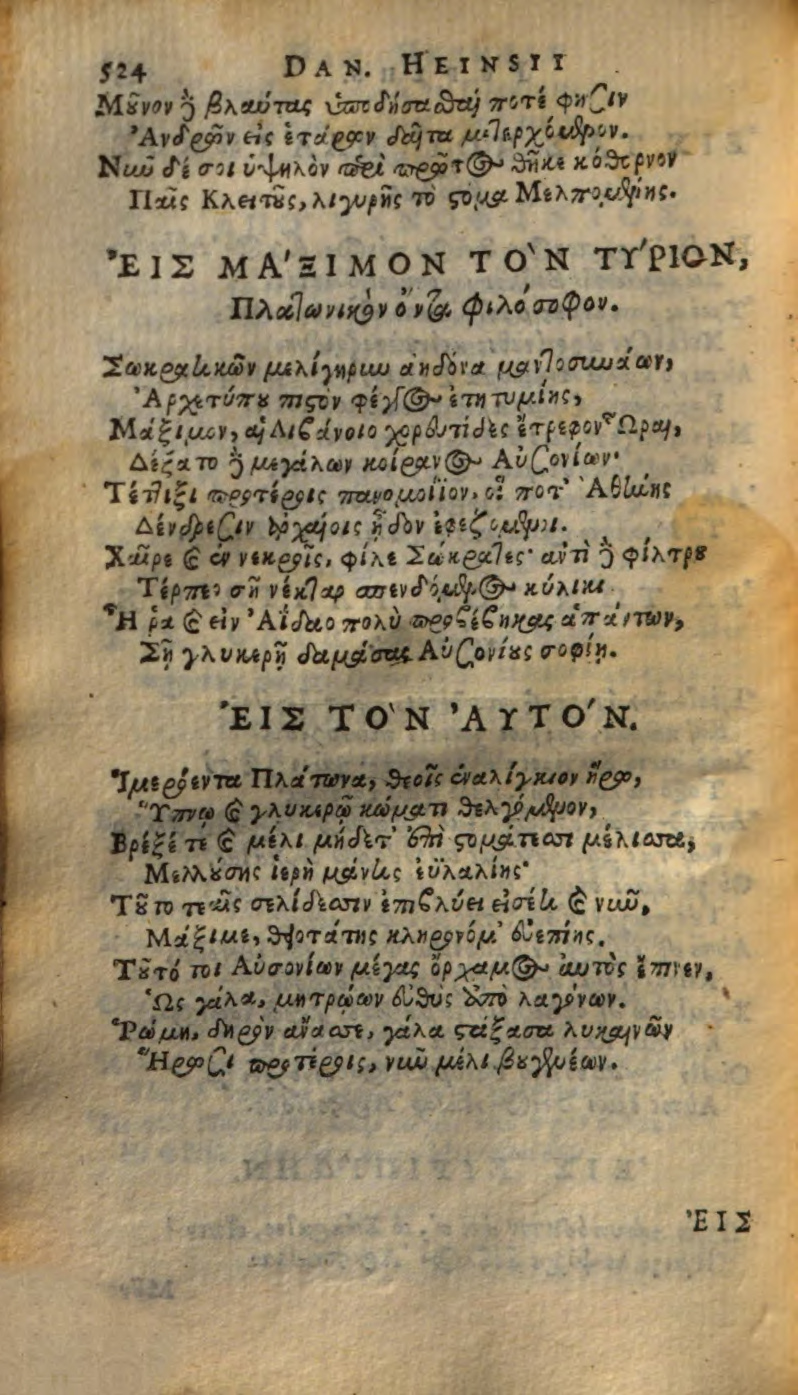 524 DAN. HEINSII
Μοῦνον δὲ βλαύτας ὑποδήσασθαί ποτέ φησιν
Ἀνδρῶν εἰς ἑτάρων δεῖπνα μετερχόμενον.
Νῦν δέ σοι ὑψηλὸν περὶ πρῶτος θῆκε κόθορνον
Παῖς Κλειτοῦς, λιγυρῆς τὸ στόμα Μελπομένης.
ἘΙΣ ΜΑ'ΞΙΜΟΝ ΤΟ`Ν ΤΥ'ΡΙΟΝ,
Πλατωνικὸν ὄντα φιλόσοφον.
Σωκρατικῶν μελίγηρυν ἀηδόνα μαντοσυνάων,
Ἀρχετύπου πιστὸν φέγγος ἐτητυμίης,
Μάξιμον, αἱ Λιβάνοιο χορευτίδες ἔτρεφον Ὧραι,
Δέξατο δὲ μεγάλων κοίρανος Αὐσονίων·
Τέττιξι προτέροις πανομοίϊον, οἵ ποτ' Ἀθήνης
Δένδρεσιν ἀρχαίοις ἥδον ἐφεζόμενοι.
Χαῖρε καὶ ἐν νεκροῖς, φίλε Σώκρατες· ἀντὶ δὲ φίλτρου
Τέρπεο σῇ νέκταρ σπενδόμενος κύλικι
Ἦ ῥα καὶ εἰν Ἀίδαο πολὺ προβέβηκας ἁπάντων,
Σῇ γλυκερῇ δαμάσας Αὐσονίους σοφίῃ.
ἘΙΣ ΤΟ`Ν ἈΥΤΟ'Ν.
Ἱμερόεντα Πλάτωνα, θεοῖς ἐναλίγκιον ἥρω,
Ὕπνῳ καὶ γλυκερῷ κώματι θελγόμενον,
Βρέξέ τε καὶ μέλι μήδετ' ἐπὶ στομάτεσσι μέλισσα,
Μελλούσης ἱερὴ μάντις ἐϋλαλίης·
Τοῦτο τεαῖς σελίδεσσιν ἐπιβλύει εἰσέτι καὶ νῦν,
Μάξιμε, θειοτάτης κληρονόμ' εὐεπίης.
Τοῦτό τοι Αὐσονίων μέγας ὄρχαμος αὐτὸς ἔπινεν,
Ὡς γάλα, μητρώων εὐθὺς ἀπὸ λαγόνων.
Ῥώμη, δηρὸν ἄνασσε, γάλα στάξασα λυκαινῶν
Ἥρωσι προτέροις, νῦν μέλι βουγενέων.
ἘΙΣ